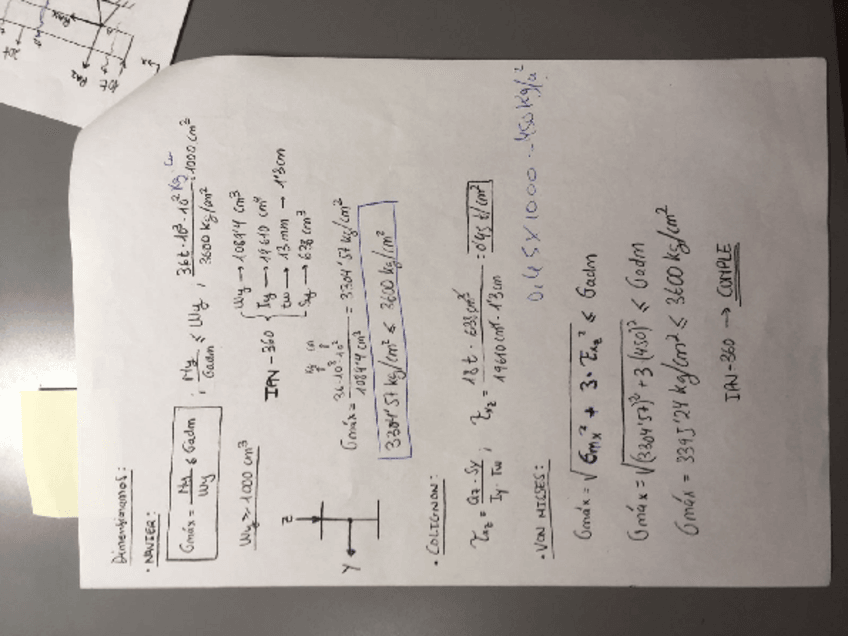 Dimensionamos:
• NAVIER:
σmáx = My / Wy ≤ σadm ; My / σadm ≤ Wy ; 36t·10³·10² kg·cm / 3600 kg/cm² = 1000 cm³
Wy ≥ 1000 cm³
IPN-360 { Wy → 1089'4 cm³
Iy → 19610 cm⁴
tw → 13 mm → 1'3 cm
Sy → 638 cm³
Z
Y
kg cm
σmáx = 36·10³·10² / 1089'4 cm³ = 3304'57 kg/cm²
3304'57 kg/cm² ≤ 3600 kg/cm²
• COLIGNON:
τxz = Qz·Sy / Iy·tw ; τxz = 18t · 638 cm³ / 19610 cm⁴ · 1'3 cm = 0'45 t/cm²
0.45 x 1000 = 450 kg/cm²
• VON MISSES:
σmáx = √σmx² + 3·τxz² ≤ σadm
σmáx = √(3304'57)² + 3(450)² ≤ σadm
σmáx = 3395'24 kg/cm² ≤ 3600 kg/cm²
IPN-360 → CUMPLE